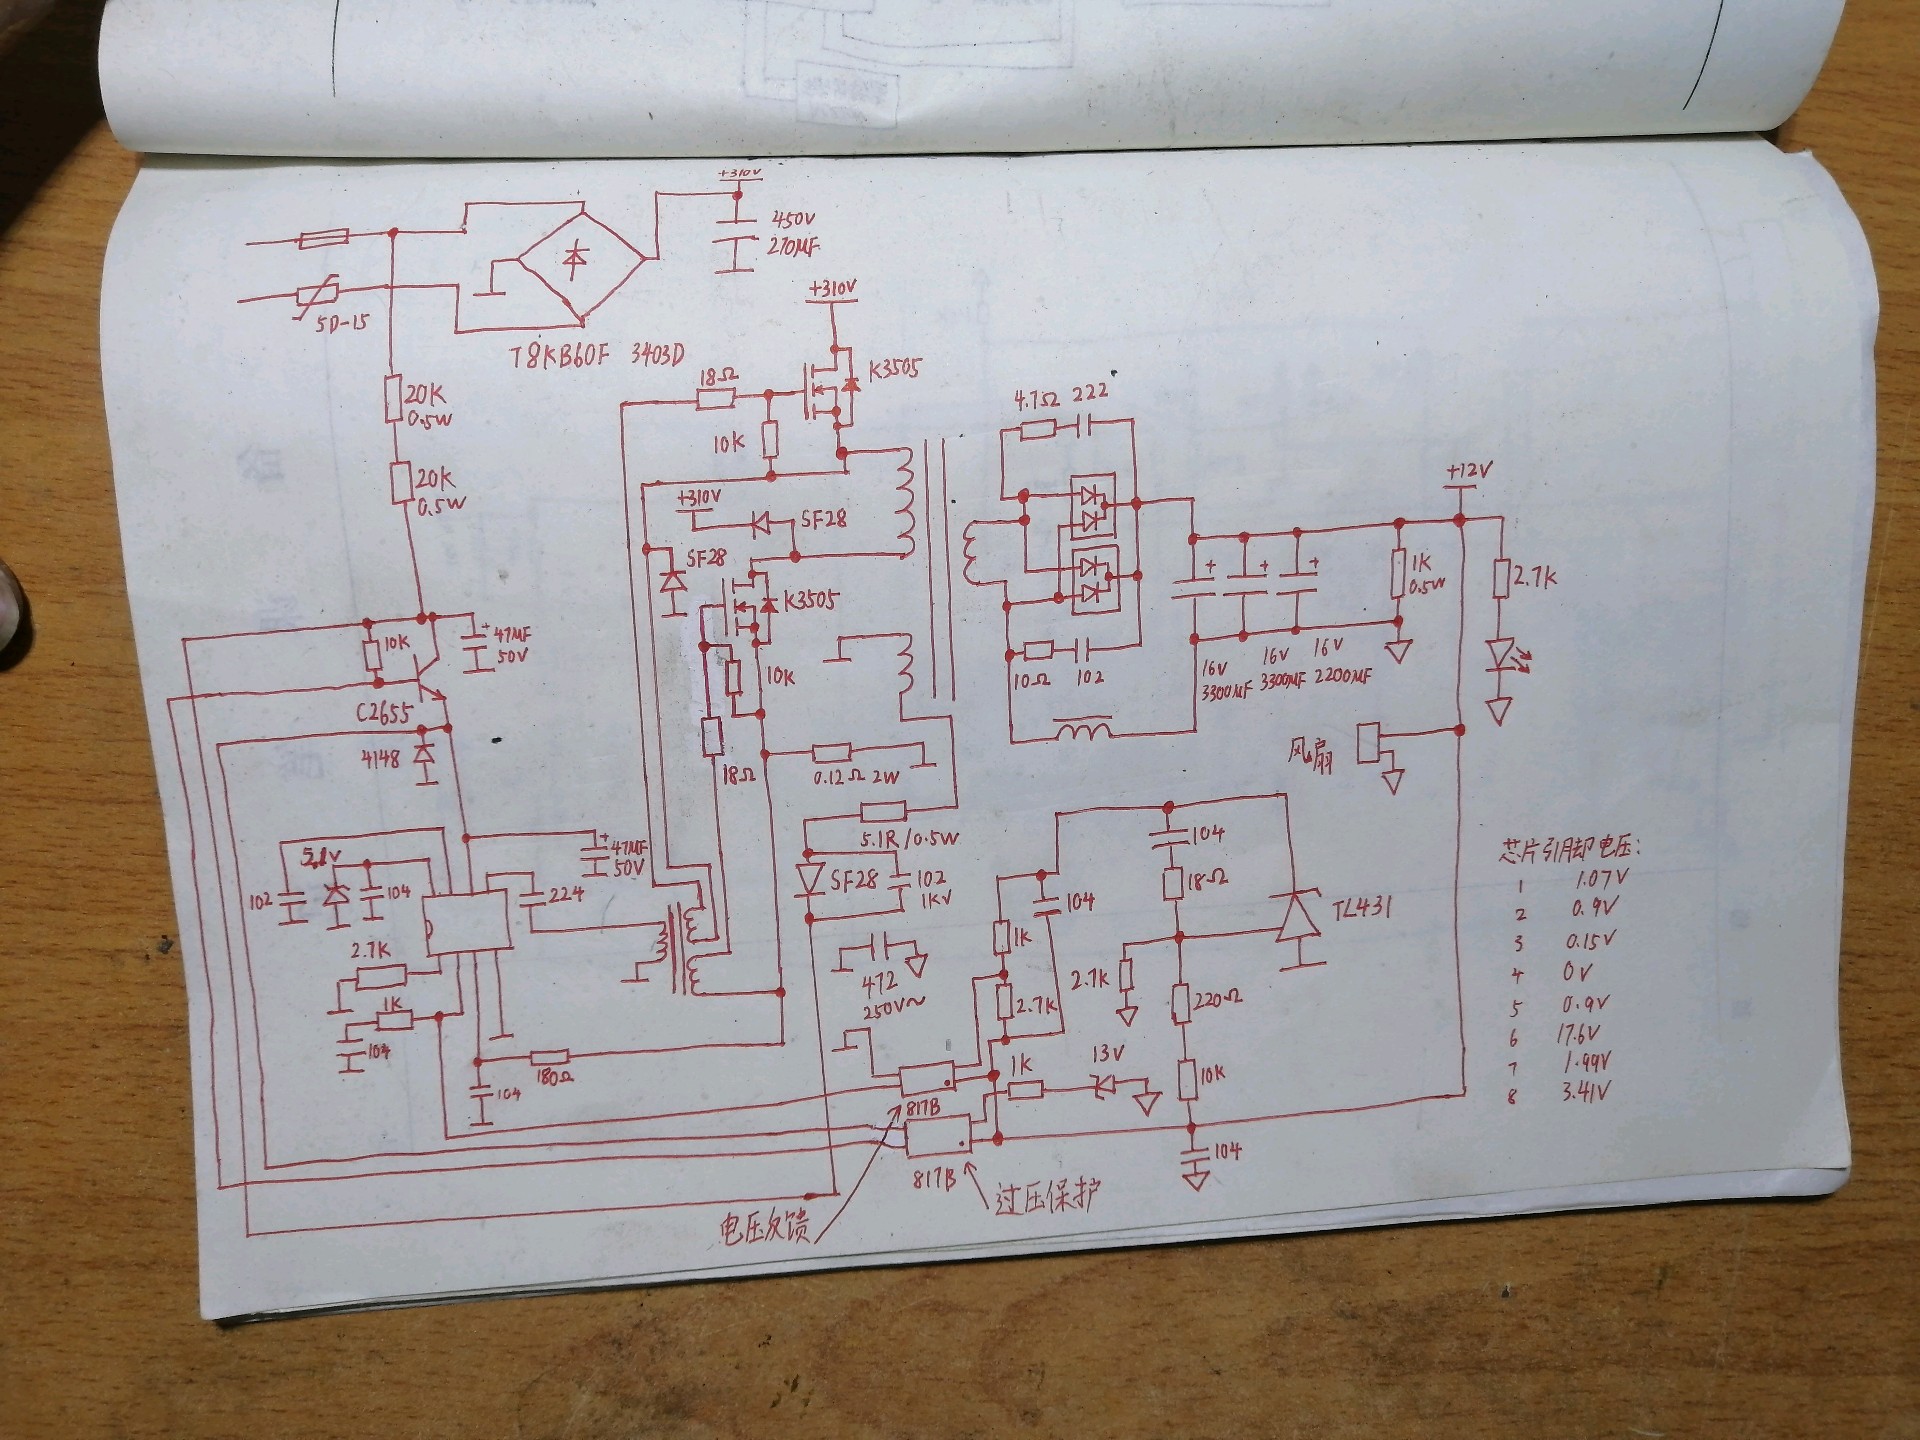 +310V
450V
270MF
5D-15
T8KB60F 3403D
+310V
K3505
18Ω
10K
20K
0.5W
20K
0.5W
+310V
SF28
SF28
K3505
10K
18Ω
0.12Ω 2W
5.1R/0.5W
SF28
102
1KV
472
250V~
4.7Ω 222
10Ω 102
16V
3300MF
16V
3300MF
16V
2200MF
1K
0.5W
+12V
2.7K
风扇
10K
47MF
50V
C2655
4148
47MF
50V
102
104
224
2.7K
1K
104
104
180Ω
104
18Ω
TL431
104
1K
2.7K
2.7K
220Ω
10K
1K
13V
104
817B
817B
电压反馈
过压保护
芯片引脚电压:
1 1.07V
2 0.9V
3 0.15V
4 0V
5 0.9V
6 17.6V
7 1.99V
8 3.41V